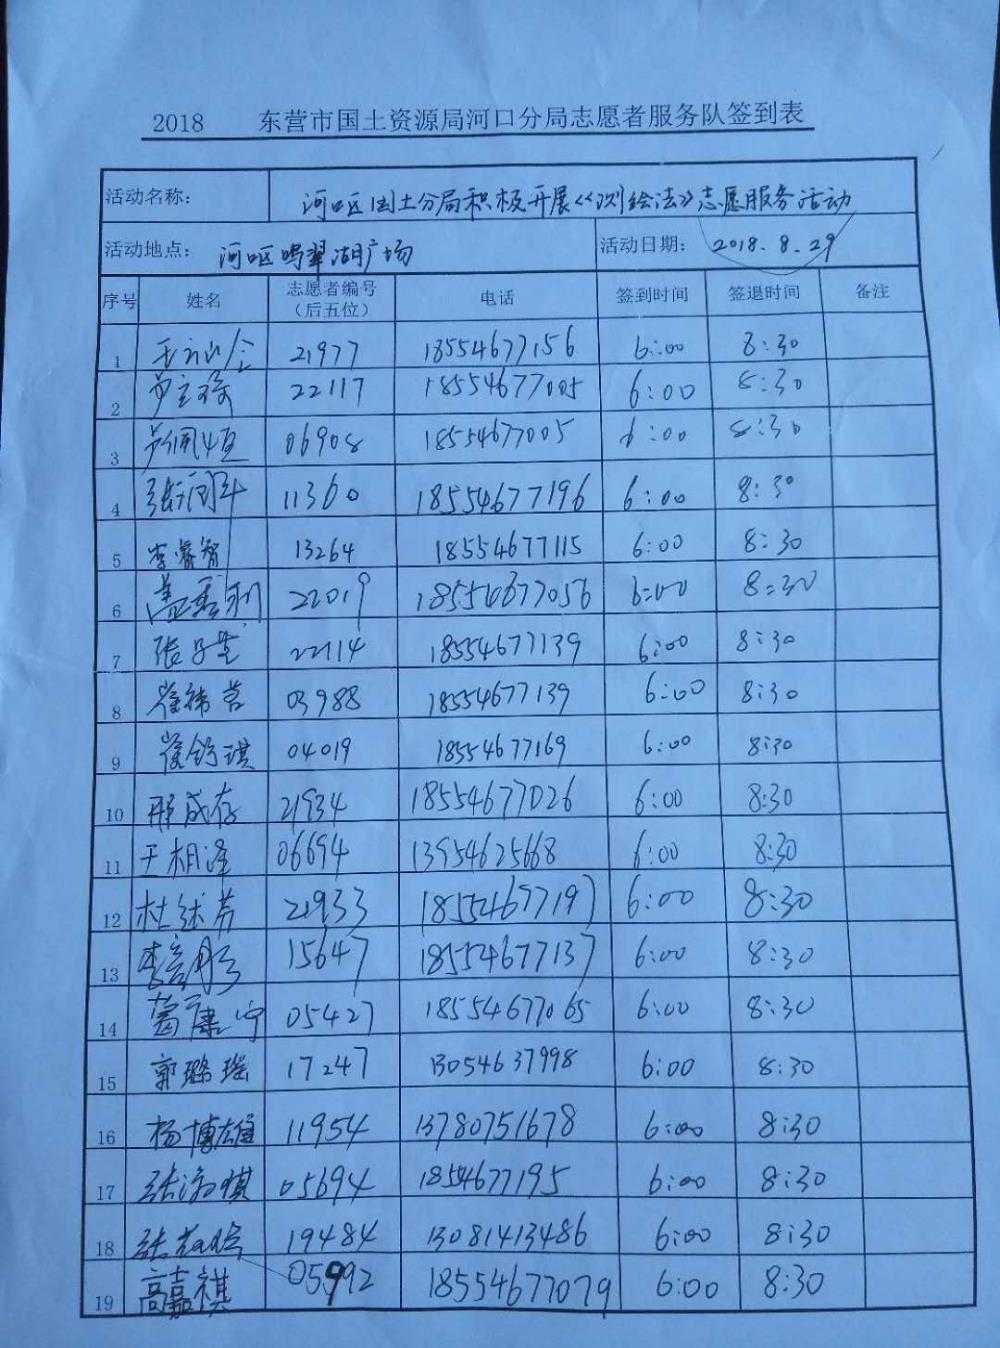 2018 东营市国土资源局河口分局志愿者服务队签到表
活动名称： 河口区国土分局积极开展《测绘法》志愿服务活动
活动地点： 河口区鸣翠湖广场 活动日期： 2018.8.29
序号 姓名 志愿者编号（后五位） 电话 签到时间 签退时间 备注
1 21977 18554677156 6:00 8:30
2 22117 18554677005 6:00 8:30
3 06908 18554677005 6:00 8:30
4 11360 18554677196 6:00 8:30
5 李睿智 13264 18554677115 6:00 8:30
6 22019 18554677056 6:00 8:30
7 22114 18554677139 6:00 8:30
8 03988 18554677139 6:00 8:30
9 04019 18554677169 6:00 8:30
10 邢成存 21934 18554677026 6:00 8:30
11 王相泽 06694 13954625668 6:00 8:30
12 21933 18554677197 6:00 8:30
13 15647 18554677137 6:00 8:30
14 葛康宁 05427 18554677065 6:00 8:30
15 郭璐瑶 17247 13054637998 6:00 8:30
16 杨博雄 11954 13780751678 6:00 8:30
17 05694 18554677195 6:00 8:30
18 19484 13081413486 6:00 8:30
19 高嘉祺 05992 18554677079 6:00 8:30